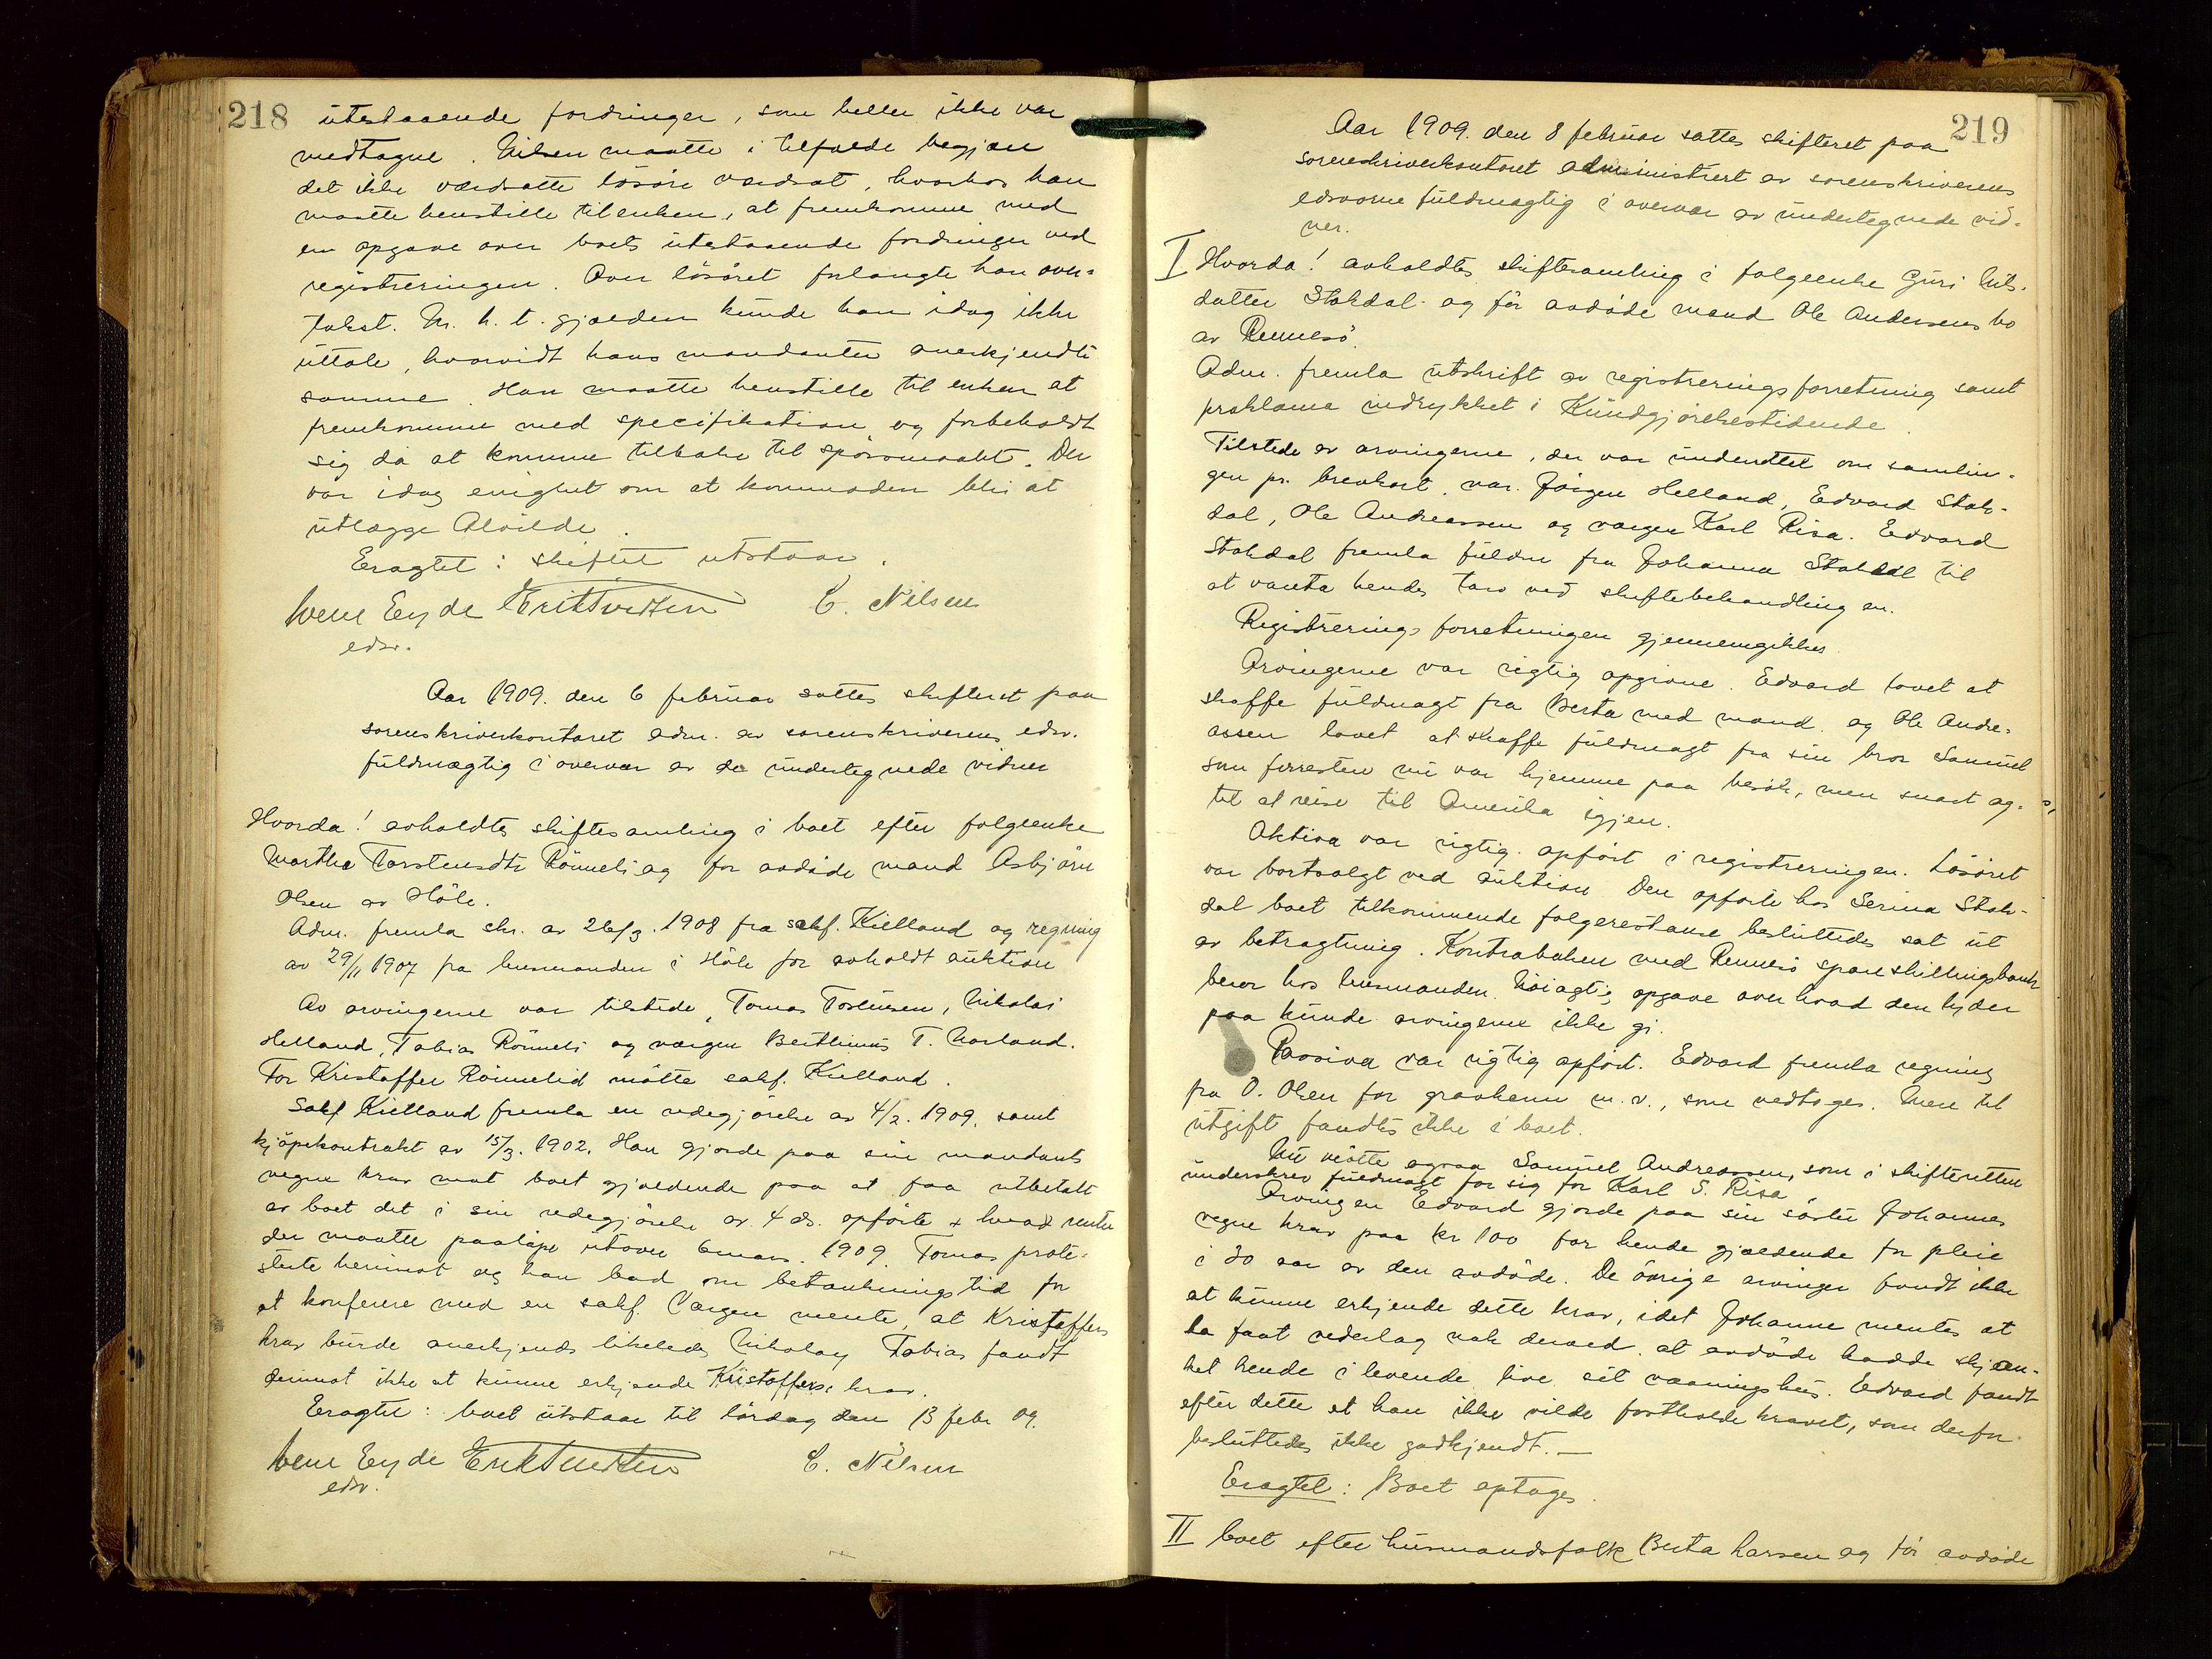 218
utestaaende fordringer, som heller ikke var
medtagne. Nilsen maatte i tilfælde begjære
det ikke værdsatte løsøre værdsat, hvorhos han
maatte henstille til enken, at fremkomme med
en opgave over boets utestaaende fordringer ved
registreringen. Over løsøret forlangte han over-
takst. M. h. t. gjælden kunde han idag ikke
uttale, hvorvidt hans mandanter anerkjendte
samme. Han maatte henstille til enken at
fremkomme med specifikation og forbeholdt
sig da at komme tilbake til spørsmaalet. Der
var idag enighet om at kommoden blir at
utlægge Alvilde.
Eragtet: skiftet utstaar.
Eyde C. Nilsen
edsv.
Aar 1909. den 6 februar sattes skifteret paa
sorenskriverkontoret adm. av sorenskriverens edsv.
fuldmægtig i overvær av de undertegnede vidner
Hvorda! avholdtes skiftesamling i boet efter følgeenke
Martha Torstensdtr Rönneli og før avdøde mand Asbjørn
Olsen av Høle.
Adm. fremla skr. av 26/3. 1908 fra sakf. Kielland og regning
av 29/11 1907 fra lensmanden i Høle for avholdt auktion
Av arvingerne var tilstede, Tomas Torstensen, Nikolai
Helland, Tobias Rönneli og værgen Berthinius T. Norland.
For Kristoffer Rönnelid møtte sakf. Kielland.
Sakf Kielland fremla en redegjørelse av 4/2. 1909. samt
kjøpekontrakt av 15/3. 1902. Han gjorde paa sin mandants
vegne krav mot boet gjældende paa at faa utbetalt
av boet det i sin redegjørelse av 4 ds. opførte + hvad renter
der maatte paaløpe utover 6 mars 1909. Tomas prote-
sterte herimot og han bad om betænkningstid for
at konferere med en sakf. Værgen mente, at Kristoffers
krav burde anerkjendes likeledes Nikolay. Tobias fandt
derimot ikke at kunne erkjende Kristoffers krav.
Eragtet: boet utstaar til lørdag den 13 febr 09.
Eyde C. Nilsen
edsv.
219
Aar 1909. den 8 februar sattes skifteret paa
sorenskriverkontoret administrert av sorenskriverens
edsvorne fuldmægtig i overvær av undertegnede vid-
ner.
I Hvorda! avholdtes skiftesamling i følgeenke Guri Nils-
datter Stokdal og før avdøde mand Ole Andersens bo
av Rennesø.
Adm. fremla utskrift av registreringsforretning samt
proklama indrykket i Kundgjørelsestidende.
Tilstede av arvingerne, der var underrettet om samlin-
gen pr. brevkort, var Jørgen Helland, Edvard Stok-
dal, Ole Andreassen og værgen Karl Risa. Edvard
Stokdal fremla fuldm fra Johanna Stokdal til
at vareta hendes tarv ved skiftebehandlingen.
Registreringsforretningen gjennemgikkes.
Arvingerne var rigtig opgivne. Edvard lovet at
skaffe fuldmagt fra Berta med mand og Ole Andre-
assen lovet at skaffe fuldmagt fra sin bror Samuel
som forresten nu var hjemme paa besøk, men snart ag-
til at reise til Amerika igjen.
Aktiva var rigtig opført i registreringen. Løsøret
var bortsolgt ved auktion. Den opførte hos Serina Stok-
dal boet tilkommende følgerestanse besluttedes sat ut
av betragtning. Kontraboken med Rennesø spareskillingsbank
beror hos lensmanden. Nøiagtig opgave over hvad den lyder
paa kunde arvingerne ikke gi.
Passiva var rigtig opført. Edvard fremla regning
fra O. Olsen for gravkanne m.v., som vedtoges. Mere til
utgift fandtes ikke i boet.
Nu møtte ogsaa Samuel Andreassen, som i skifteretten
underskrev fuldmagt for sig for Karl S. Risa.
Arvingen Edvard gjorde paa sin søster Johannes
vegne krav paa kr 100 for hende gjældende for pleie
i 30 aar av den avdøde. De øvrige arvinger fandt ikke
at kunne erkjende dette krav, idet Johanne mentes at
ha faat vederlag nok derved, at avdøde hadde skjæn-
ket hende i levende live sit vaaningshus. Edvard fandt
efter dette at han ikke vilde fastholde kravet, som derfor
besluttedes ikke godkjendt.—
Eragtet: Boet optages.
II boet efter husmandsfolk Berta Larsen og før avdøde